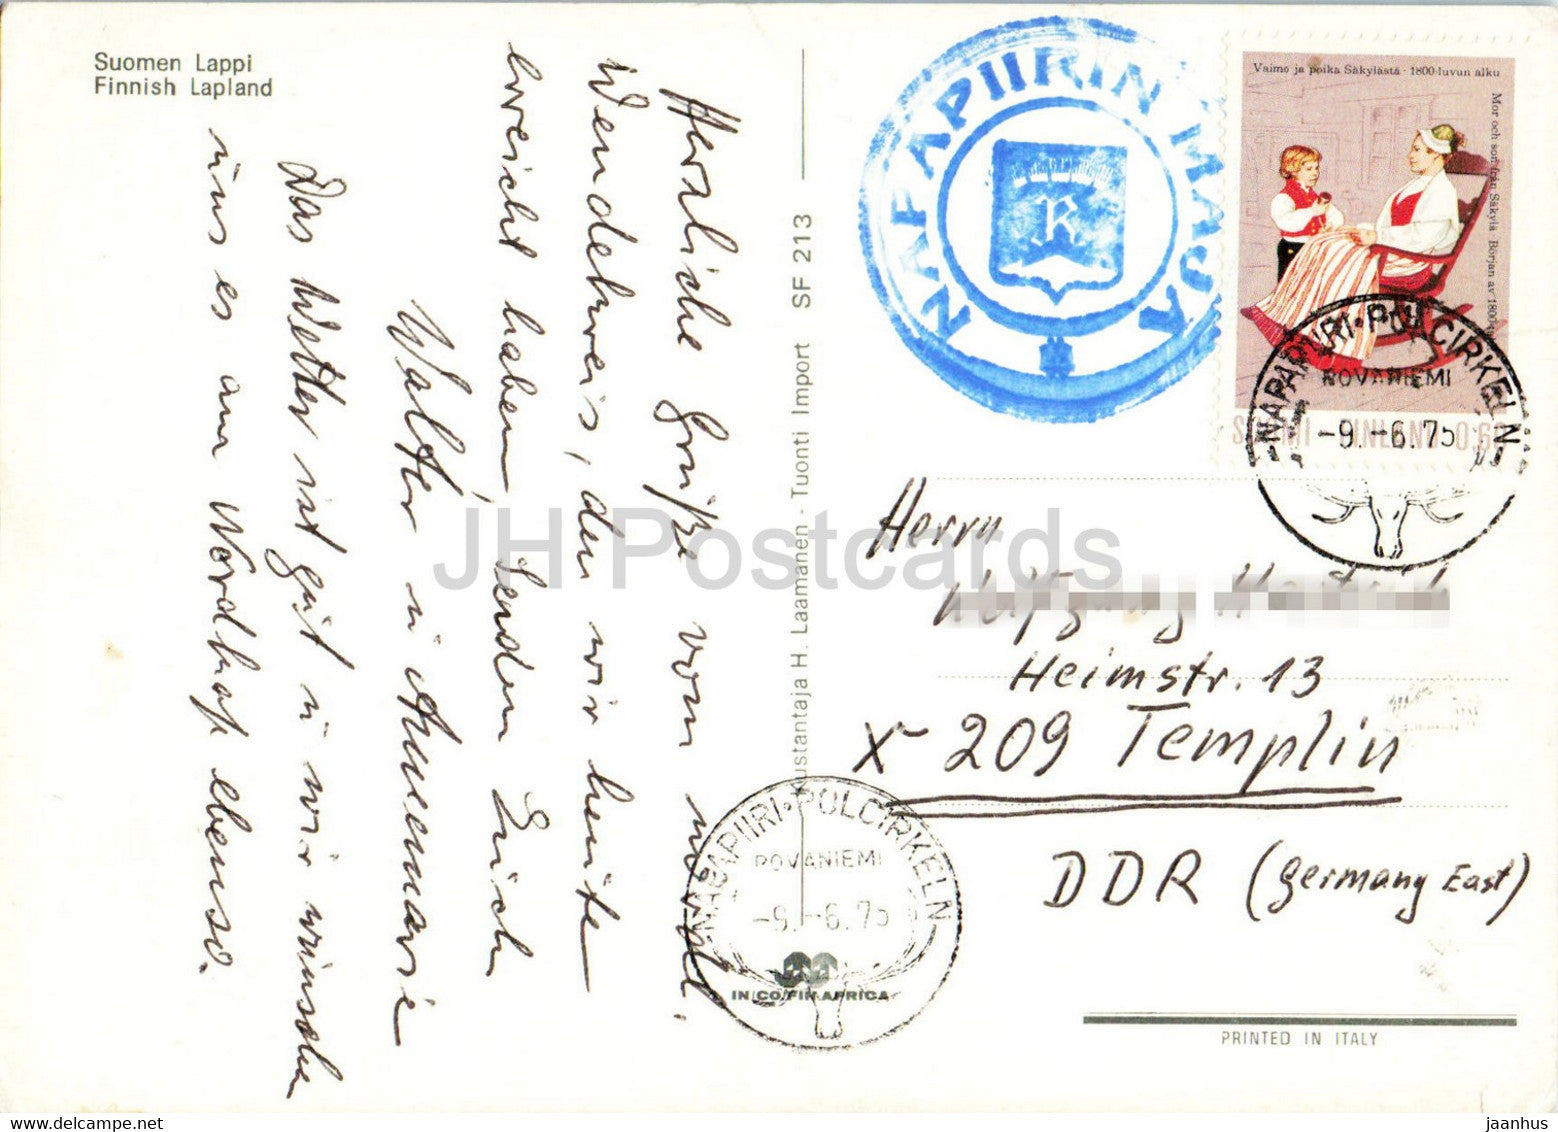 Suomen Lappi
Finnish Lapland
Herzliche Grüße vom nördl.
Wendekreis, den wir heute
erreicht haben, senden Euch
Walter u. Annemarie
Das Wetter ist gut u. wir wünschen
uns es am Nordkap ebenso.
Kustantaja H. Laamanen - Tuonti Import SF 213
NAPAPIIRIN MAJA
R
Vaimo ja poika Säkylästä - 1800-luvun alku
Mor och son från Säkylä Början av 1800-
SUOMI - FINLAND 0,60
NAPAPIIRI · POLCIRKELN
ROVANIEMI
-9.-6.75
Herrn
Heimstr. 13
X 209 Templin
DDR (Germany East)
NAPAPIIRI · POLCIRKELN
ROVANIEMI
-9.-6.75
IN/CO/FIN AFRICA
PRINTED IN ITALY
JH Postcards
jaanhus
www.delcampe.net